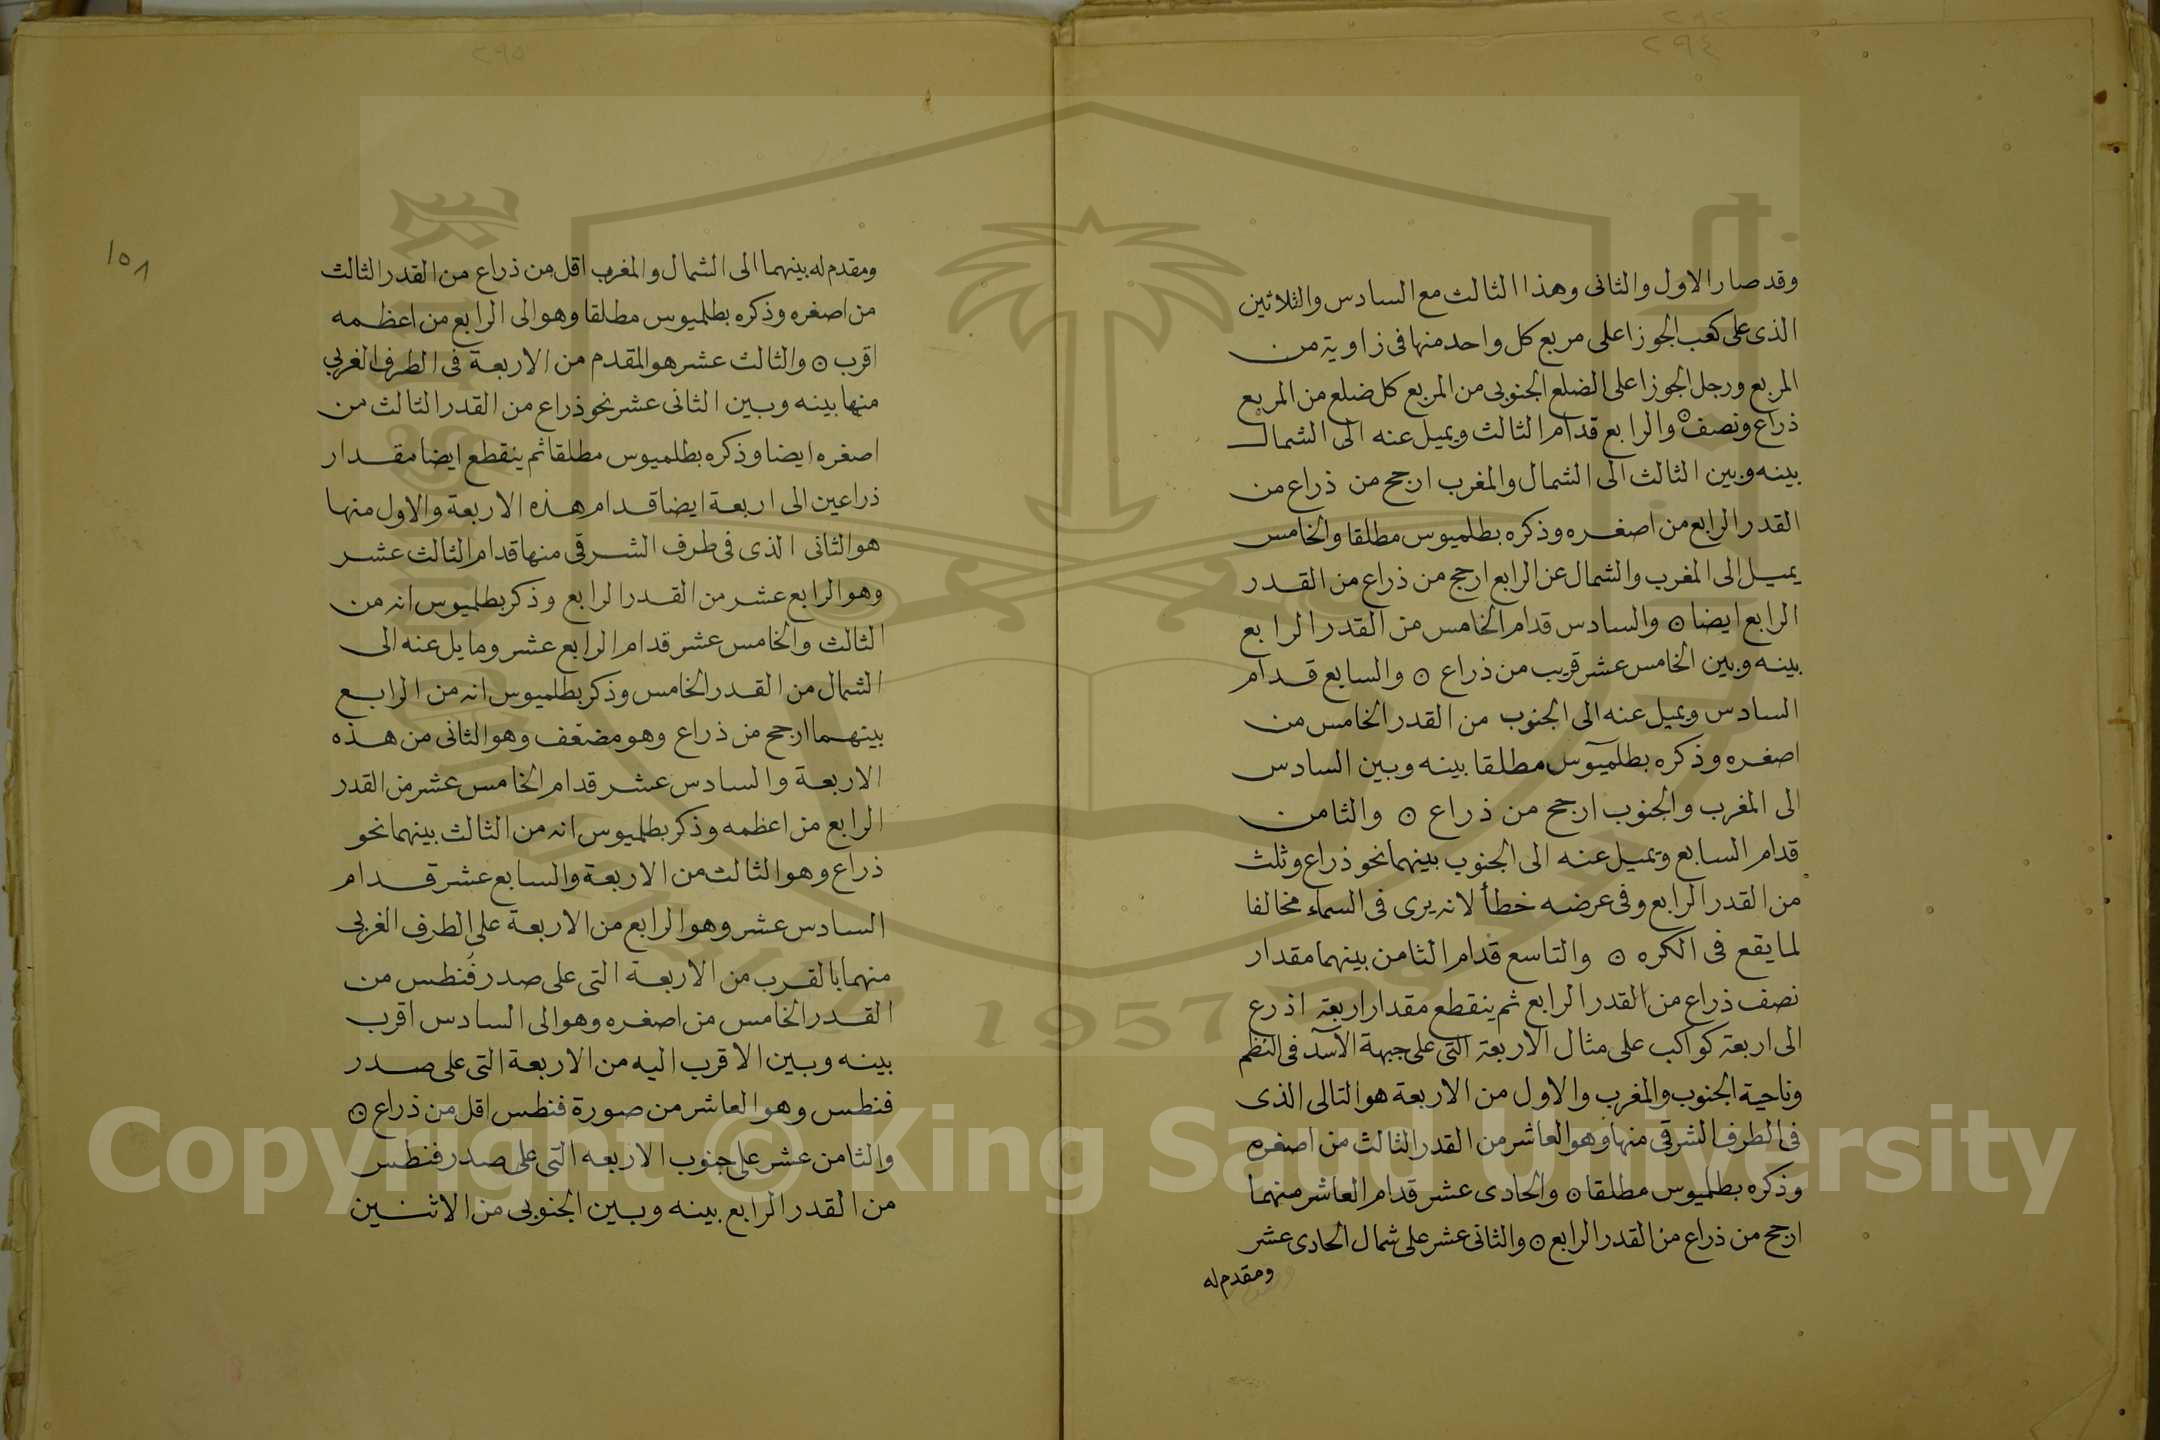 ٢٩٤
وقد صار الاول والثانى وهذا الثالث مع السادس والثلاثين
الذى على كعب الجوزا على مربع كل واحد منها فى زاوية من
المربع ورجل الجوزا على الضلع الجنوبى من المربع كل ضلع من المربع
ذراع ونصف ۞ والرابع قدام الثالث ويميل عنه الى الشمال
بينه وبين الثالث الى الشمال والمغرب ارجح من ذراع من
القدر الرابع من اصغره وذكره بطلميوس مطلقا والخامس
يميل الى المغرب والشمال عن الرابع ارجح من ذراع من القدر
الرابع ايضا ۞ والسادس قدام الخامس من القدر الرابع
بينه وبين الخامس عشر قريب من ذراع ۞ والسابع قدام
السادس ويميل عنه الى الجنوب من القدر الخامس من
اصغره وذكره بطلميوس مطلقا بينه وبين السادس
الى المغرب والجنوب ارجح من ذراع ۞ والثامن
قدام السابع ويميل عنه الى الجنوب بينهما نحو ذراع وثلث
من القدر الرابع وفى عرضه خطأ لانه يرى فى السماء مخالفا
لما يقع فى الكره ۞ والتاسع قدام الثامن بينهما مقدار
نصف ذراع من القدر الرابع ثم ينقطع مقدار اربعة اذرع
الى اربعة كواكب على مثال الاربعة التى على جبهة الآسد فى النظم
وناحية الجنوب والمغرب والاول من الاربعة هو التالى الذى
فى الطرف الشرقى منها وهو العاشر من القدر الثالث من اصغره
وذكره بطلميوس مطلقا ۞ والحادى عشر قدام العاشر منهما
ارجح من ذراع من القدر الرابع ۞ والثانى عشر على شمال الحادى عشر
ومقدم له
٢٩٥
١٥٨
ومقدم له بينهما الى الشمال والمغرب اقل من ذراع من القدر الثالث
من اصغره وذكره بطلميوس مطلقا وهو الى الرابع من اعظمه
اقرب ۞ والثالث عشر هو المقدم من الاربعة فى الطرف الغربى
منها بينه وبين الثانى عشر نحو ذراع من القدر الثالث من
اصغره ايضا وذكره بطلميوس مطلقا ثم ينقطع ايضا مقدار
ذراعين الى اربعة ايضا قدام هذه الاربعة والاول منها
هو الثانى الذى فى طرف الشرقى منها قدام الثالث عشر
وهو الرابع عشر من القدر الرابع وذكر بطلميوس انه من
الثالث والخامس عشر قدام الرابع عشر ومايل عنه الى
الشمال من القدر الخامس وذكر بطلميوس انه من الرابع
بينهما ارجح من ذراع وهو مضعف وهو الثانى من هذه
الاربعة والسادس عشر قدام الخامس عشر من القدر
الرابع من اعظمه وذكر بطلميوس انه من الثالث بينهما نحو
ذراع وهو الثالث من الاربعة والسابع عشر قدام
السادس عشر وهو الرابع من الاربعة على الطرف الغربى
منهما بالقرب من الاربعة التى على صدر فُنطس من
القدر الخامس من اصغره وهو الى السادس اقرب
بينه وبين الاقرب اليه من الاربعة التى على صدر
فنطس وهو العاشر من صورة فنطس اقل من ذراع ۞
والثامن عشر على جنوب الاربعه التى على صدر فنطس
من القدر الرابع بينه وبين الجنوبى من الاثنين
1957
Copyright © King Saud University